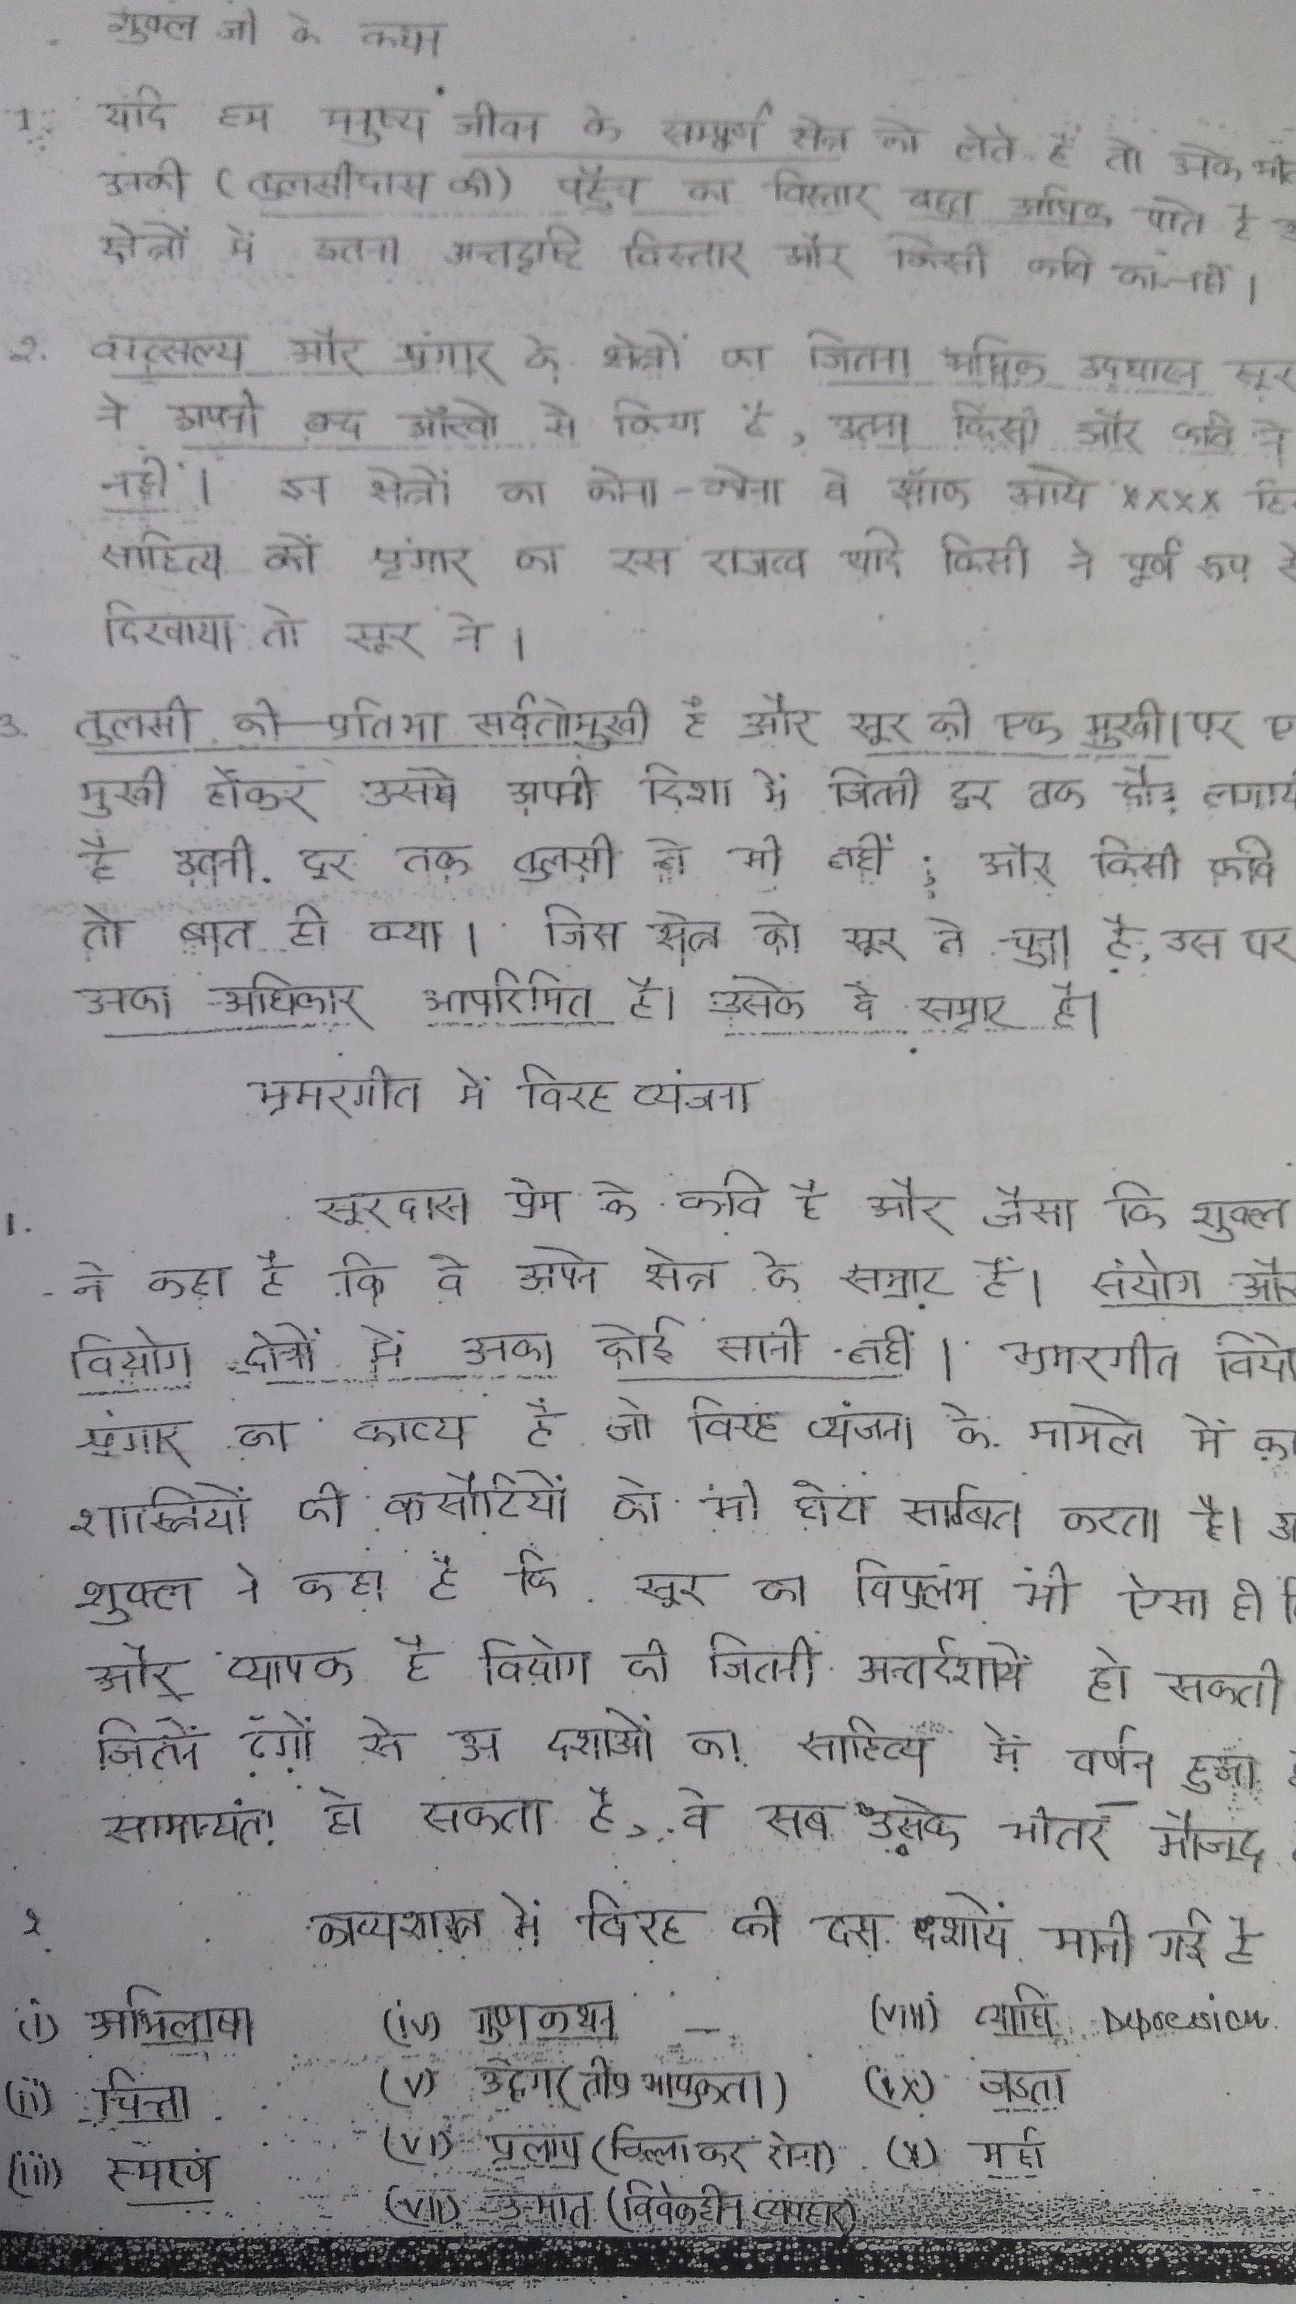 शुक्ल जी के कथन
1. यदि हम मनुष्य जीवन के सम्पूर्ण क्षेत्र को लेते हैं तो
उनकी (तुलसीदास की) पहुँच का विस्तार बहुत अधिक पाते है
क्षेत्रों में इतना अन्तदृष्टि विस्तार और किसी कवि का नहीं।
2. वात्सल्य और श्रृंगार के क्षेत्रों का जितना अधिक उद्घाटन सूर
ने अपनी बन्द आँखो से किया है, उतना किसी और कवि ने
नहीं। इन क्षेत्रों का कोना-कोना वे झाँक आये xxxx
साहित्य को श्रृंगार का रस राजत्व यदि किसी ने पूर्ण रूप से
दिखाया तो सूर ने।
3. तुलसी की प्रतिभा सर्वतोमुखी है और सूर की एक मुखी। पर
मुखी होकर उसमे अपनी दिशा में जितनी दूर तक दौड़
है उतनी दूर तक तुलसी ने भी नहीं; और किसी कवि
तो बात ही क्या। जिस क्षेत्र को सूर ने चुना है, उस पर
उनका अधिकार अपरिमित है। उसके वे सम्राट है।
भ्रमरगीत में विरह व्यंजना
1. सूरदास प्रेम के कवि है और जैसा कि शुक्ल
ने कहा है कि वे अपने क्षेत्र के सम्राट हैं। संयोग
वियोग क्षेत्रों में उनका कोई सानी नहीं। भ्रमरगीत
श्रृंगार का काव्य है जो विरह व्यंजना के मामले में
शास्त्रियों की कसौटियों को भी छोटा साबित करता है।
शुक्ल ने कहा है कि सूर का विप्रलंभ भी ऐसा ही
और व्यापक है वियोग की जितनी अन्तर्दशायें हो सकती
जितने ढंगों से उन दशाओं का साहित्य में वर्णन हुआ
सामान्यतः हो सकता है, वे सब उसके भीतर मौजूद
2. काव्यशास्त्र में विरह की दस दशायें मानी गई है
(i) अभिलाषा (iv) गुण कथन – (viii) व्याधि Depression
(ii) चिन्ता (v) उद्वेग (तीव्र भावुकता) (ix) जडता
(iii) स्मरण (vi) प्रलाप (चिल्लाकर रोना) (x) मूर्छा
(vii) उन्माद (विवेकहीन व्यवहार)